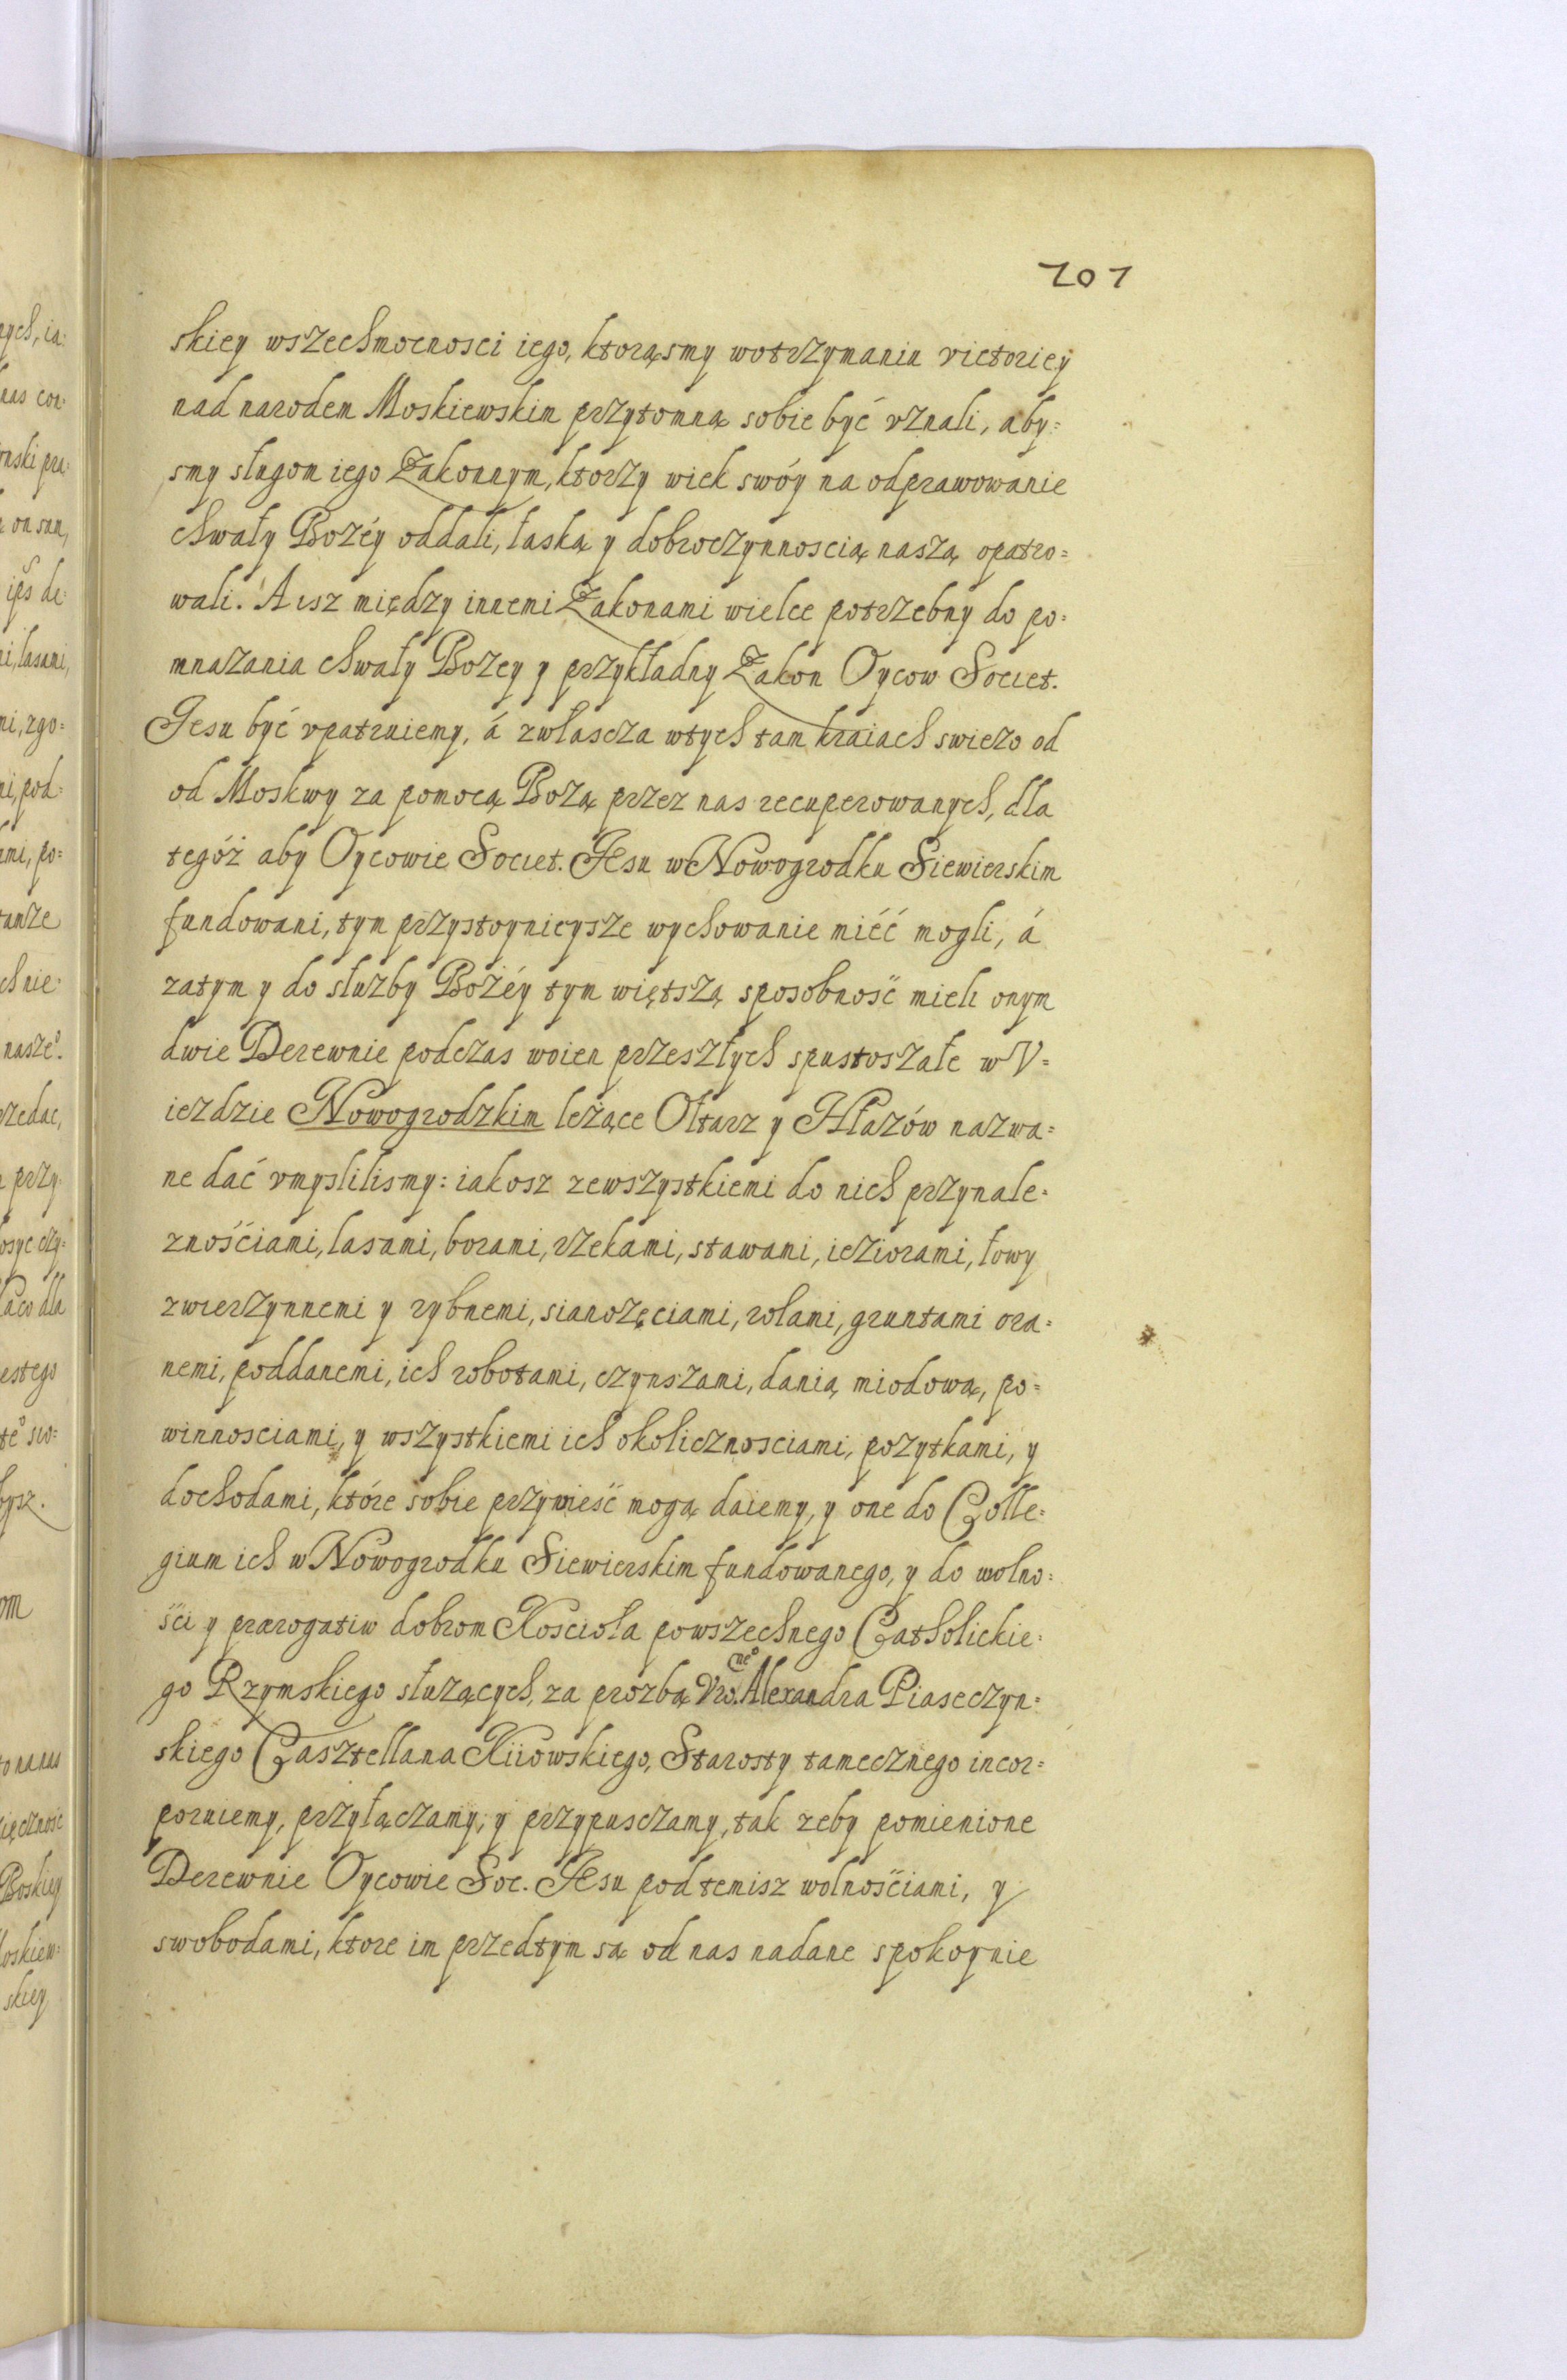 701
skiey wszechmocnosci iego, ktorąsmy wotrzymaniu victoriey
nad narodem Moskiewskim przytomną sobie być vznali, aby=
smy sługom iego Zakonnym, ktorzy wiek swóy na odprawowanie
chwały Bożéy oddali, łaską y dobroczynnoscią naszą opatro=
wali. A isz między innemi Zakonami wielce potrzebny do po=
mnazania chwały Bozey y przykładny Zakon Oycow Societ.
Jesu być vpatruiemy, á zwłascza wtych tam kraiach swiezo od
od Moskwy za pomocą Bozą przez nas recuperowanych, dla
tegóż aby Oycowie Societ. Jesu w Nowogrodku Siewierskim
fundowani, tym przystoynieysze wychowanie miéć mogli, á
zatym y do słuzby Bożéy tym więtszą sposobność mieli onym
dwie Derewnie podczas woien przeszłych spustoszałe w V=
iezdzie Nowogrodzkim leżące Ołtarz y Hłazów nazwa=
ne dać vmyslilismy: iakosz zewszystkiemi do nich przynale=
znościami, lasami, borami, rzekami, stawami, ieziorami, łowy
zwierzynnemi y rybnemi, sianozęciami, rolami, gruntami ora=
nemi, poddanemi, ich robotami, czynszami, danią miodową, po=
winnosciami, y wszystkiemi ich okolicznosciami, pozytkami, y
dochodami, które sobie przynieść mogą daiemy, y one do Colle=
gium ich w Nowogrodku Siewierskim fundowanego, y do wolno=
ści y prærogatiw dobrom Kosciola powszechnego Catholickie=
go Rzymskiego słuzących, za prozbą Vro.neo Alexandra Piaseczyn=
skiego Casztellana Kiiowskiego, Starosty tamecznego incor=
poruiemy, przyłączamy, y przypusczamy, tak zeby pomienione
Derewnie Oycowie Soc. Jesu pod temisz wolnościami, y
swobodami, ktore im przedtym są od nas nadane spokoynie